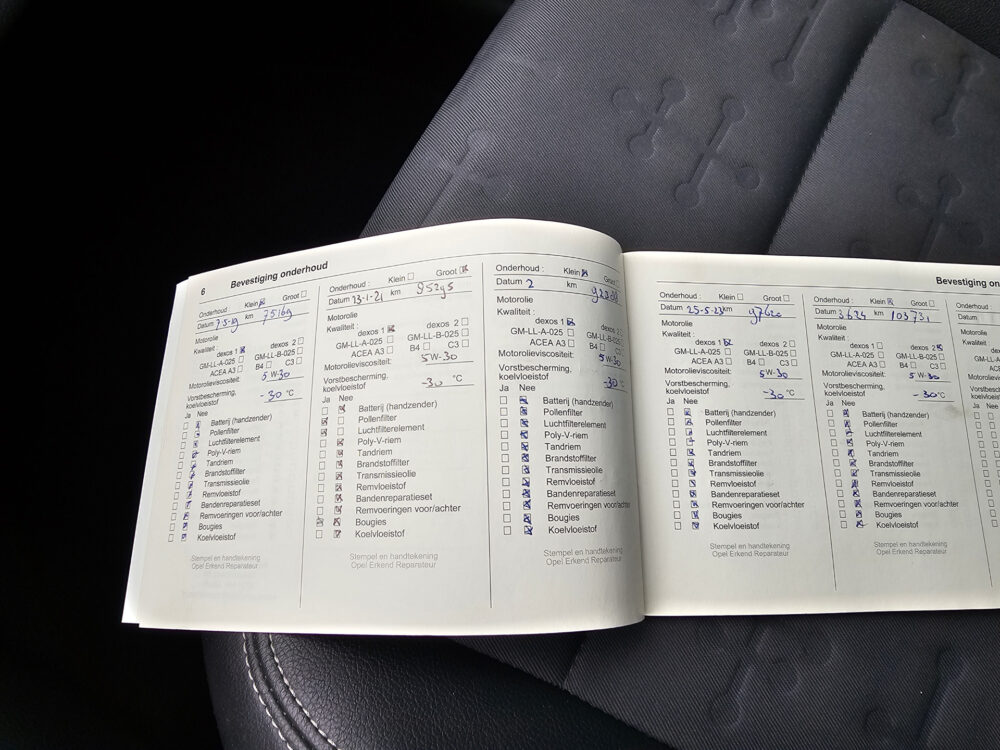 6 Bevestiging onderhoud
Onderhoud : Klein Groot
Datum 7-5-19 km 75169
Motorolie
Kwaliteit :
dexos 1 dexos 2
GM-LL-A-025 GM-LL-B-025
ACEA A3 B4 C3
Motorolieviscositeit:
5 W-30
Vorstbescherming,
koelvloeistof -30 °C
Ja Nee
Batterij (handzender)
Pollenfilter
Luchtfilterelement
Poly-V-riem
Tandriem
Brandstoffilter
Transmissieolie
Remvloeistof
Bandenreparatieset
Remvoeringen voor/achter
Bougies
Koelvloeistof
Stempel en handtekening
Opel Erkend Reparateur
Onderhoud : Klein Groot
Datum 23-1-21 km 85295
Motorolie
Kwaliteit :
dexos 1 dexos 2
GM-LL-A-025 GM-LL-B-025
ACEA A3 B4 C3
Motorolieviscositeit:
5W-30
Vorstbescherming,
koelvloeistof -30 °C
Ja Nee
Batterij (handzender)
Pollenfilter
Luchtfilterelement
Poly-V-riem
Tandriem
Brandstoffilter
Transmissieolie
Remvloeistof
Bandenreparatieset
Remvoeringen voor/achter
Bougies
Koelvloeistof
Stempel en handtekening
Opel Erkend Reparateur
Onderhoud : Klein
Datum 2 km
Motorolie
Kwaliteit :
dexos 1 dexos 2
GM-LL-A-025
ACEA A3 B4
Motorolieviscositeit:
5 W-30
Vorstbescherming,
koelvloeistof -30 °C
Ja Nee
Batterij (handzender)
Pollenfilter
Luchtfilterelement
Poly-V-riem
Tandriem
Brandstoffilter
Transmissieolie
Remvloeistof
Bandenreparatieset
Remvoeringen voor/achter
Bougies
Koelvloeistof
Stempel en handtekening
Opel Erkend Reparateur
Bevestiging on
Onderhoud : Klein Groot
Datum 25-5-23 km 97620
Motorolie
Kwaliteit :
dexos 1 dexos 2
GM-LL-A-025 GM-LL-B-025
ACEA A3 B4 C3
Motorolieviscositeit:
5 W-30
Vorstbescherming,
koelvloeistof -30 °C
Ja Nee
Batterij (handzender)
Pollenfilter
Luchtfilterelement
Poly-V-riem
Tandriem
Brandstoffilter
Transmissieolie
Remvloeistof
Bandenreparatieset
Remvoeringen voor/achter
Bougies
Koelvloeistof
Stempel en handtekening
Opel Erkend Reparateur
Onderhoud : Klein Groot
Datum 3624 km 103731
Motorolie
Kwaliteit :
dexos 1 dexos 2
GM-LL-A-025 GM-LL-B-025
ACEA A3 B4 C3
Motorolieviscositeit:
5 W-30
Vorstbescherming,
koelvloeistof -30 °C
Ja Nee
Batterij (handzender)
Pollenfilter
Luchtfilterelement
Poly-V-riem
Tandriem
Brandstoffilter
Transmissieolie
Remvloeistof
Bandenreparatieset
Remvoeringen voor/achter
Bougies
Koelvloeistof
Stempel en handtekening
Opel Erkend Reparateur
Onderhoud :
Datum
Motorolie
Kwaliteit :
Ja